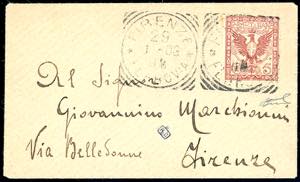 FIRENZE
29
1-06
18
Al Signor
Giovannino Marchionni
Via Belledonne
Firenze